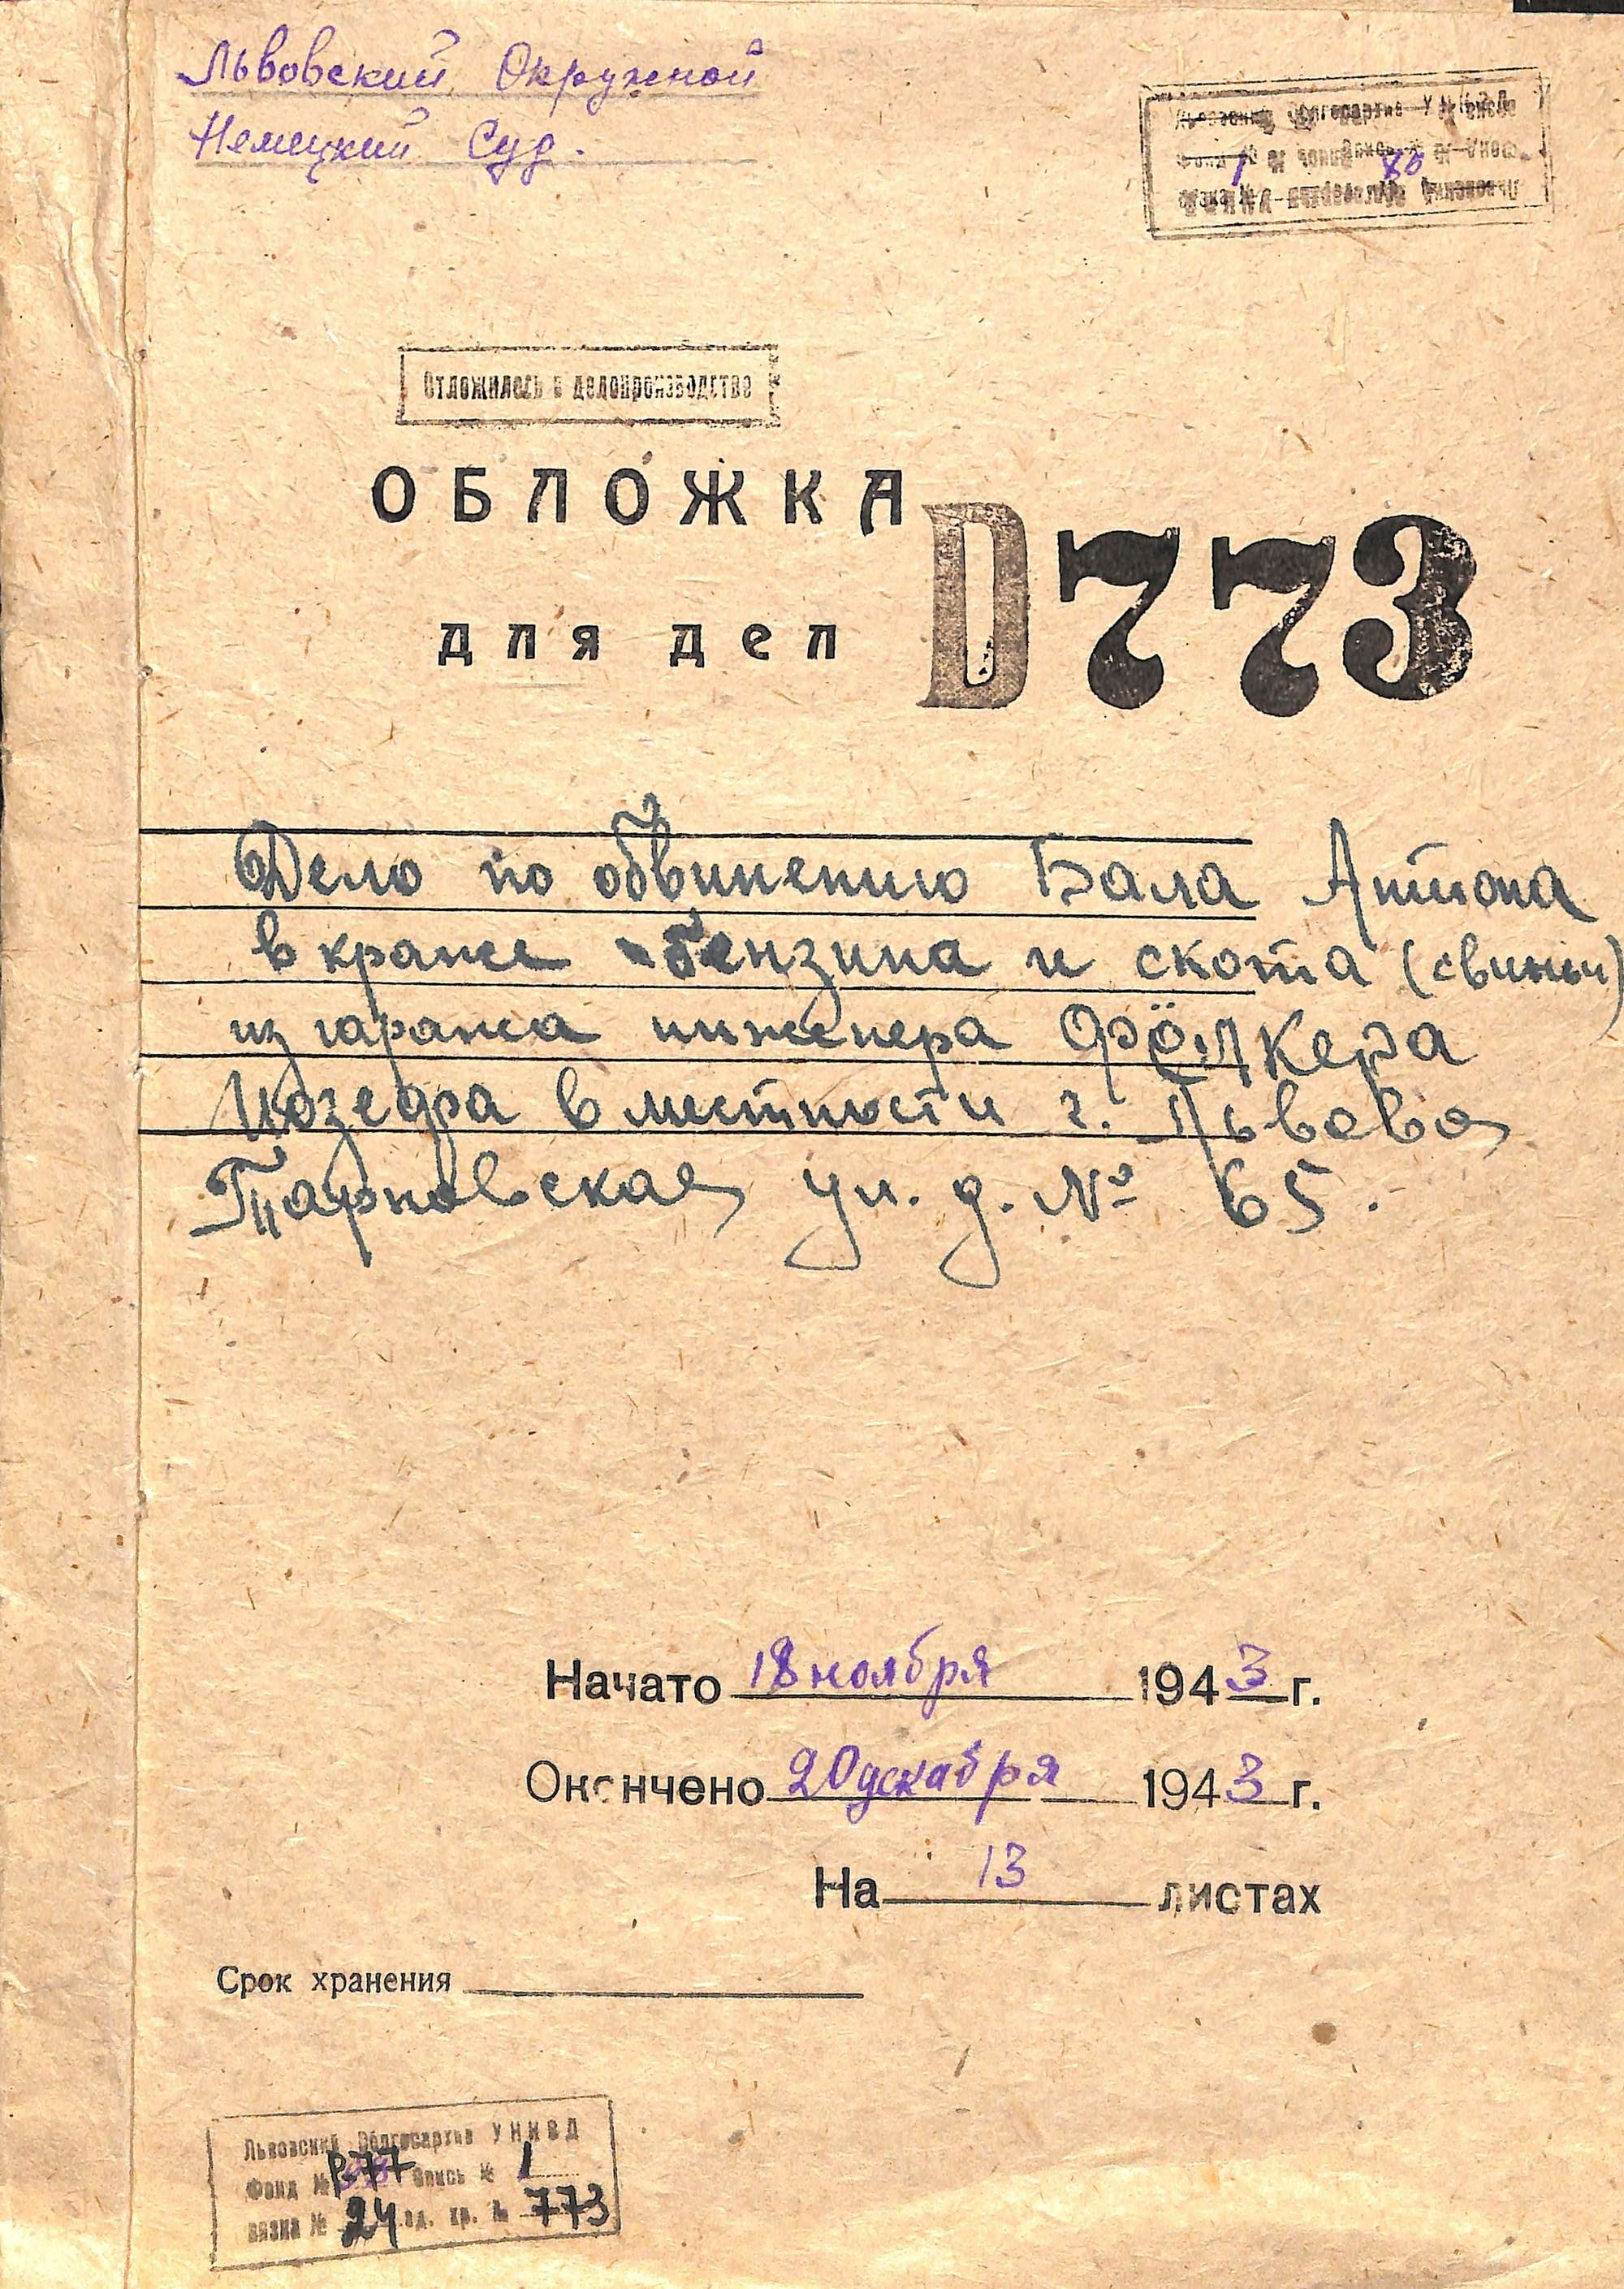 Львовский Окружной
Немецкий Суд.
Отложилось в делопроизводстве
ОБЛОЖКА
для дел
D773
Дело по обвинению Бала Антона
в краже бензина и скота (свиньи)
из гаража инженера Фölкера
Иозефа в местности г. Львова
Тарновская ул. д. № 65.
Начато 18 ноября 1943 г.
Окончено 20 декабря 1943 г.
На 13 листах
Срок хранения
Львовский Облгосархив УНКВД
Фонд № Р-77 Опись № 1
вязка № 24 ед. хр. № 773